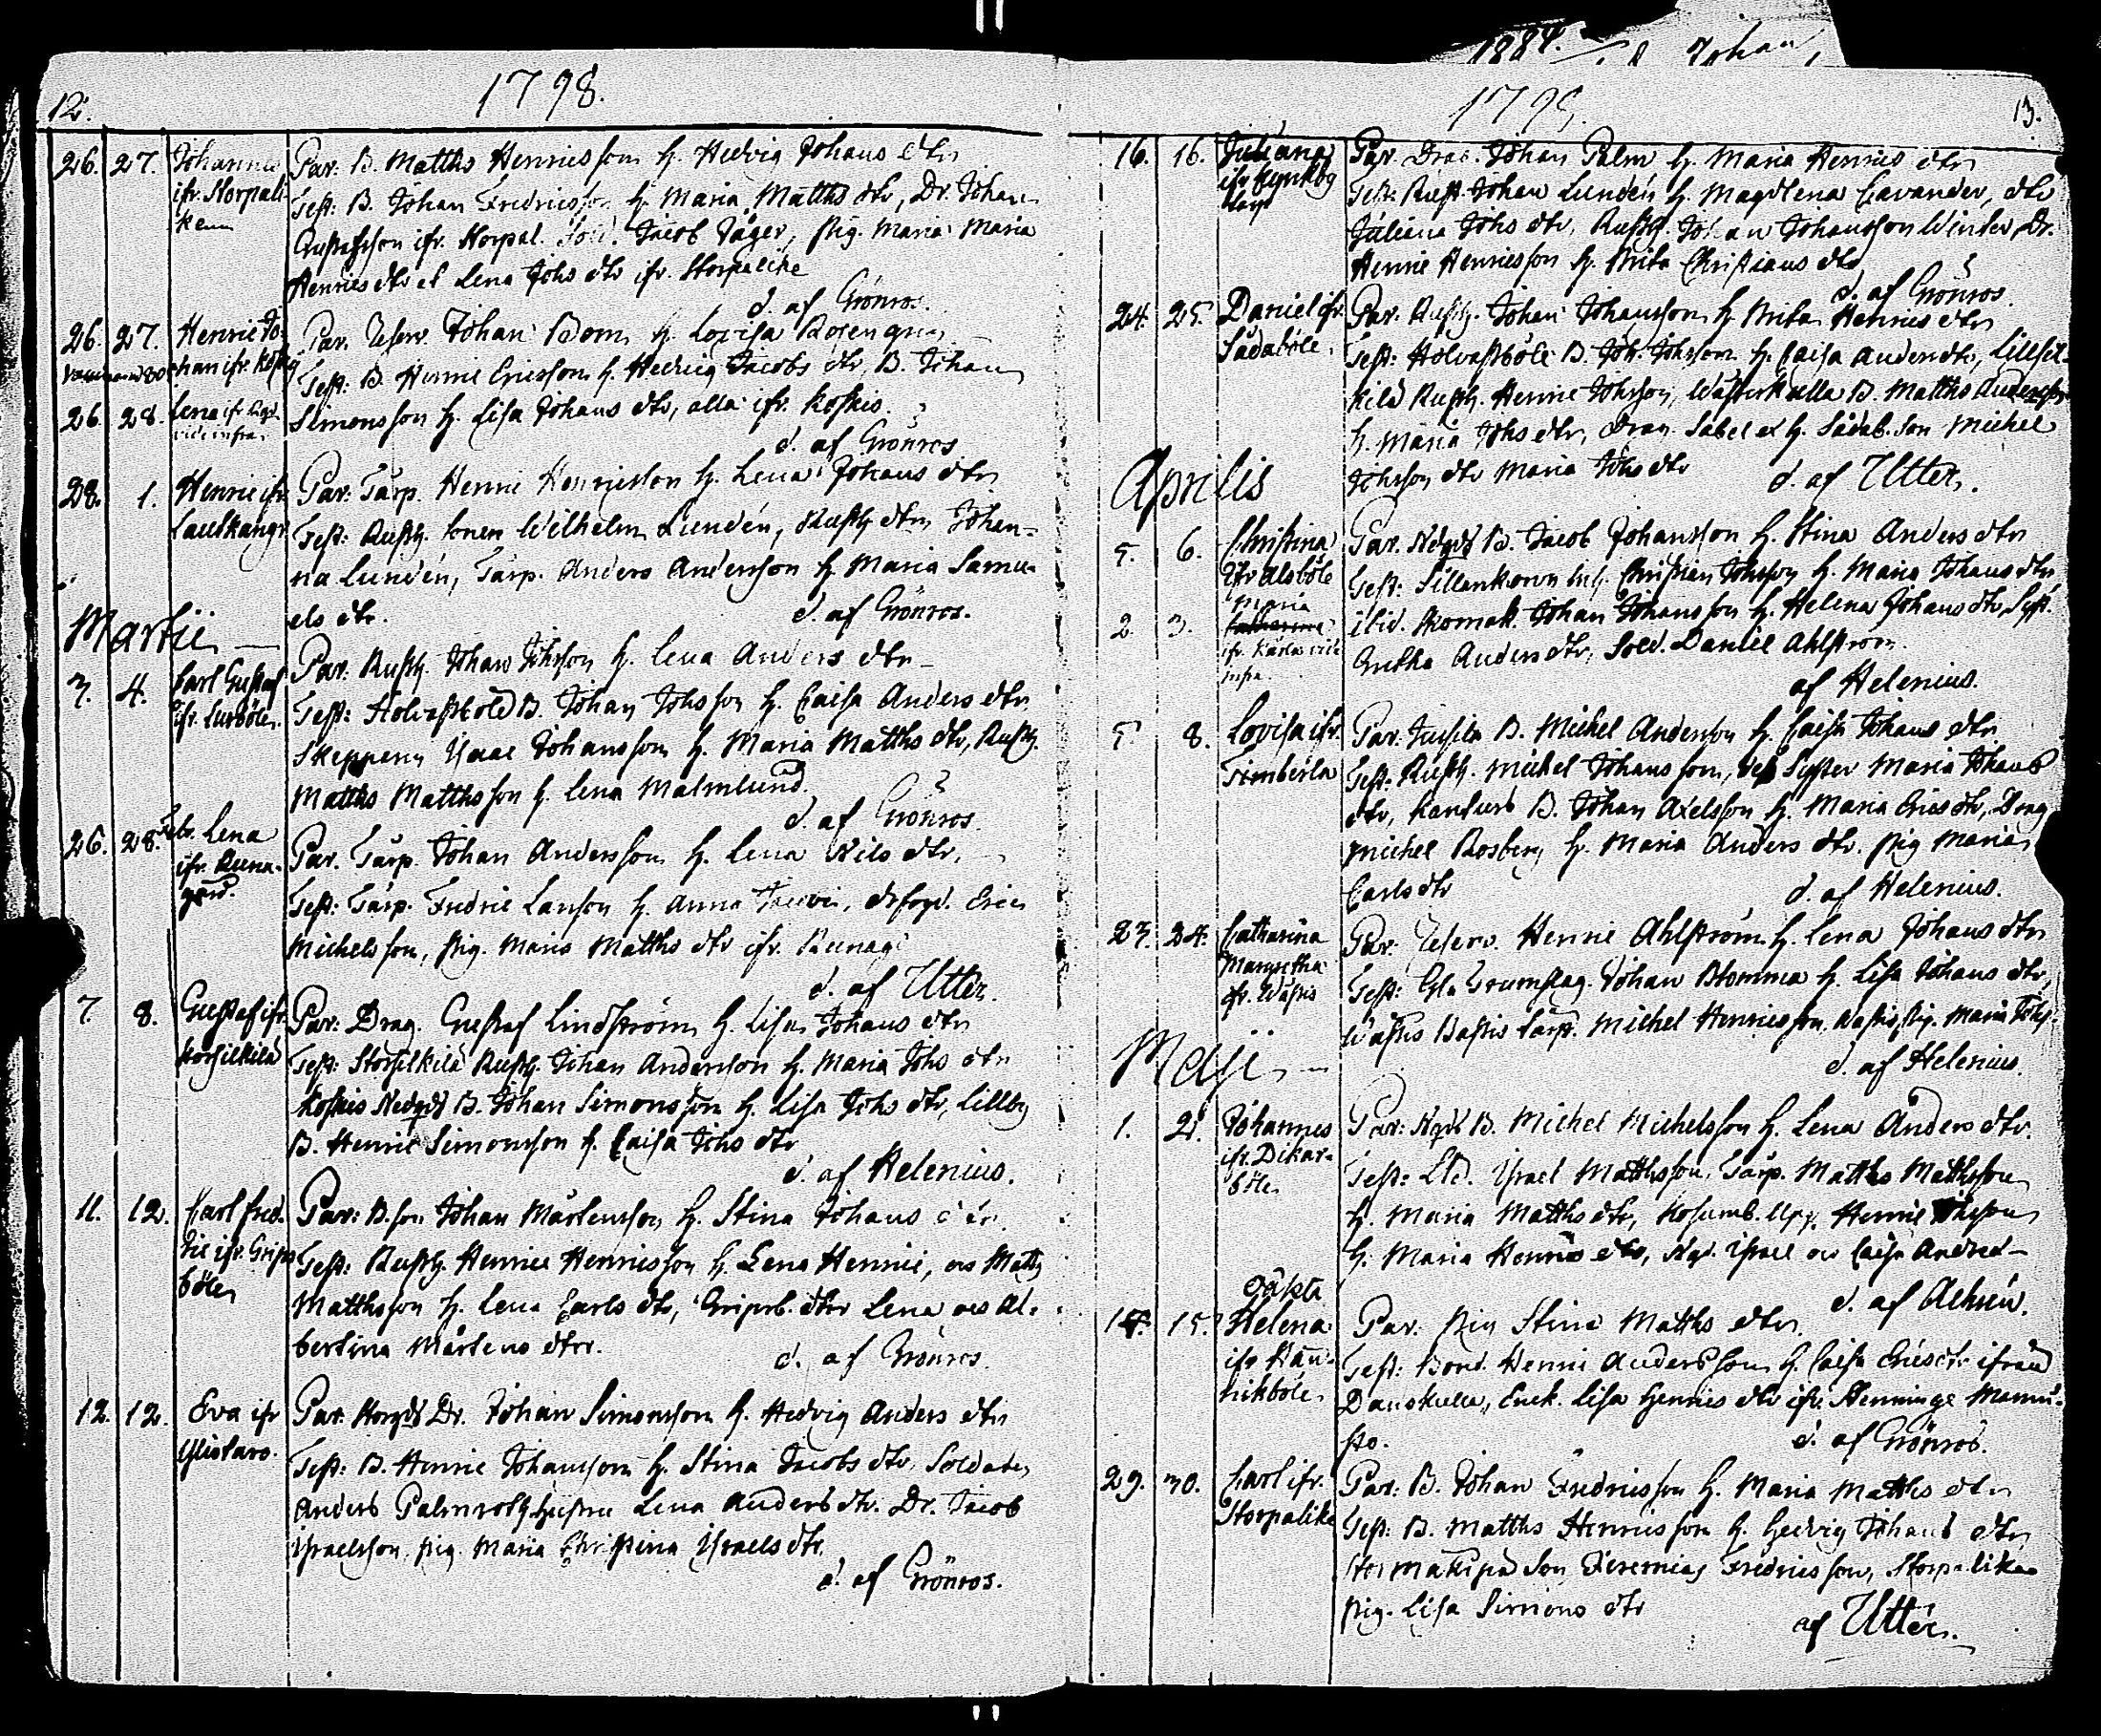 12.
1798.
26. 27. Johannes Par: B. Matths Henricsson h. Hedvig Johans dtr
ifr. Storpali- Test: B. Johan Fredricsson h. Maria Matths dtr, Dr. Johan
ken Gustafsson ifr. Storpal. Jacob Jäger, pig. Maria Maria
Henrics dtr et Lena Johs dtr ifr. Storpalike
d. af Grönros.
26. 27. Henric Jo- Par. Reserv. Johan Bom h. Lovisa Rosengren
han ifr. Test: B. Henric Ericsson h. Hedvig Jacobs dtr, B. Johan
26. 28. Lena ifr. Simonsson h. Lisa Johans dtr, alla ifr. Koskis.
vide infra
d. af Grönros
28. 1. Henric ifr. Par: Tårp. Henric Henricsson h. Lena Johans dtr
Test: Rusth. sonen Wilhelm Lundén, Rusth. dtr Johan-
na Lundén, Tårp. Anders Andersson h. Maria Samu-
els dtr. d. af Grönros.
Martii
3. 4. Carl Gustaf Par: Rusth. Johan Johsson h. Lena Anders dtr
ifr. Test: Holvastböle B. Johan Johsson h. Caisa Anders dtr
Skepparen Isaac Johansson h. Maria Matths dtr, Rusth.
Matths Matthsson h. Lena Malmlund.
d. af Grönros.
26. 28. Febr. Lena Par. Tårp. Johan Andersson h. Lena Nils dtr,
ifr. Runa- Test: Tårp. Fredric h. Anna Eric
gård. Michelsson, pig. Maria Matths dtr ifr. Runag.
d. af Utter.
7. 8. Gustaf ifr. Par: Drag. Gustaf Lindström h. Lisa Johans dtr
Storsilkilä Test: Storsilkilä Rusth. Johan Andersson h. Maria Johs dtr
Koskis Nedgd B. Johan Simonsson h. Lisa Johs dtr, Lillby
B. Henric Simonsson h. Caisa Johs dtr
d. af Helenius.
11. 12. Carl Fred- Par: B. son Johan Mårtensson h. Stina Johans dtr.
ric ifr. Grips Test: Rusth. Henric Henricsson h. Lena Henric, Matts
böle Matthsson h. Lena Carls dtr, Gripsb. dtrr Lena Al-
bertina Mårtens dtrr.
d. af Grönros.
12. 12. Eva ifr Par. Dr. Johan Simonsson h. Hedvig Anders dtr
Test: B. Henric Johansson h. Stina Jacobs dtr, Soldaten
Anders Palmroth hustru Lena Anders dtr. Dr. Jacob
Israelsson, pig. Maria Christina Israels dtr.
d. af Grönros.
1884. Johan
13.
179
16. 16. Juliana Par. Drag. Johan Palm h. Maria Henrics dtr
ifr Test: Rusth. Johan Lundén h. Magdlena Cavander, dtr
Juliana Johs dtr, Rusth. Johan Johansson Winter, Dr.
Henric Henricsson h. Brita Christians dtr
d. af Grönros.
24. 25. Daniel ifr. Par. Rusth. Johan Johansson h. Brita Henrics dtr
Sådaböle. Test: Holvastböle B. Joh. Johsson h. Caisa Anders dtr, Lillsil-
kilä Rusth. Henric Johsson, Wästerkulla B. Matths Andersson
h. Maria Johs dtr, Drag. Sabel et h. Sådab. son Michel
Johsson dtr Maria Johs dtr d. af Utter.
Aprilis
5. 6. Christina Par. Nedgd B. Jacob Johansson h. Stina Anders dtr
ifr Alsböle Test: Christian Johsson h. Maria Johans dtr
2. 3. Maria ibid. Skomak. Johan Johansson h. Helena Johans dtr, Syst.
Catharina Gretha Anders dtr, Sold. Daniel Ahlström.
ifr. Kärla vide infra. af Helenius.
5. 8. Lovisa ifr. Par. B. Michel Andersson h. Caisa Johans dtr
Timberla Test: Rusth. Michel Johansson, des Syster Maria Johans
dtr, B. Johan Axelsson h. Maria Erics dtr, Drag
Michel Rosberg h. Maria Anders dtr. pig Maria
Carls dtr d. af Helenius.
23. 24. Catharina Par: Reserv. Henric Ahlström h. Lena Johans dtr
Margretha Test: Johan Blomma h. Lisa Johans dtr,
ifr. Wästis Tårp. Michel Henricsson, pig. Maria Johs
d. af Helenius.
Maji
1. 2. Johannes Par: B. Michel Michelsson h. Lena Anders dtr.
ifr. Dikar- Test: Israel Matthsson, Tårp. Matths Matthsson
böle h. Maria Matths dtr, Henric Johsson
h. Maria Henrics dtr, Israel Caisa
d. af
15. Oäkta Helena Par: Pig Stina Matths dtr.
ifr Test: Bond. Henric Andersson h. Caisa Erics dtr ifrån
Danskulla, Enck. Lisa Henrics dtr ifr. Storninge
d. af Grönros.
29. 30. Carl ifr. Par: B. Johan Fredricsson h. Maria Matths dtr
Storpalike Test: B. Matths Henricsson h. Hedvig Johans dtr
son Jeremias Fredricsson, Storpalike
pig. Lisa Simons dtr
af Utter.